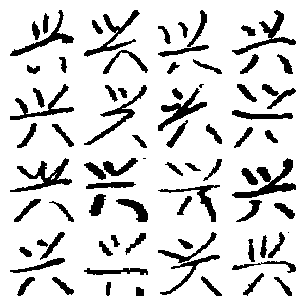 兴兴兴兴
兴兴兴兴
兴兴兴兴
兴兴兴兴